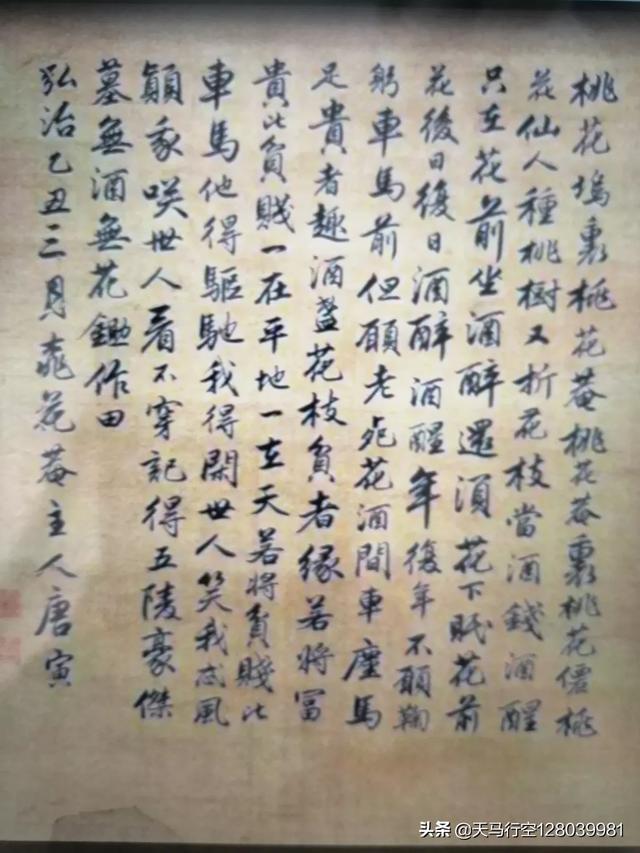 桃花塢裏桃花菴桃花菴裏桃花僊桃
花仙人種桃樹又折花枝當酒錢酒醒
只在花前坐酒醉還須花下眠花前
花後日復日酒醉酒醒年復年不願鞠
躬車馬前但願老死花酒間車塵馬
足貴者趣酒盞花枝貧者緣若將富
貴比貧賤一在平地一在天若將貧賤比
車馬他得驅馳我得閑世人笑我忒風
顛我咲世人看不穿記得五陵豪傑
墓無酒無花鋤作田
弘治乙丑三月桃花菴主人唐寅
头条 @天马行空128039981